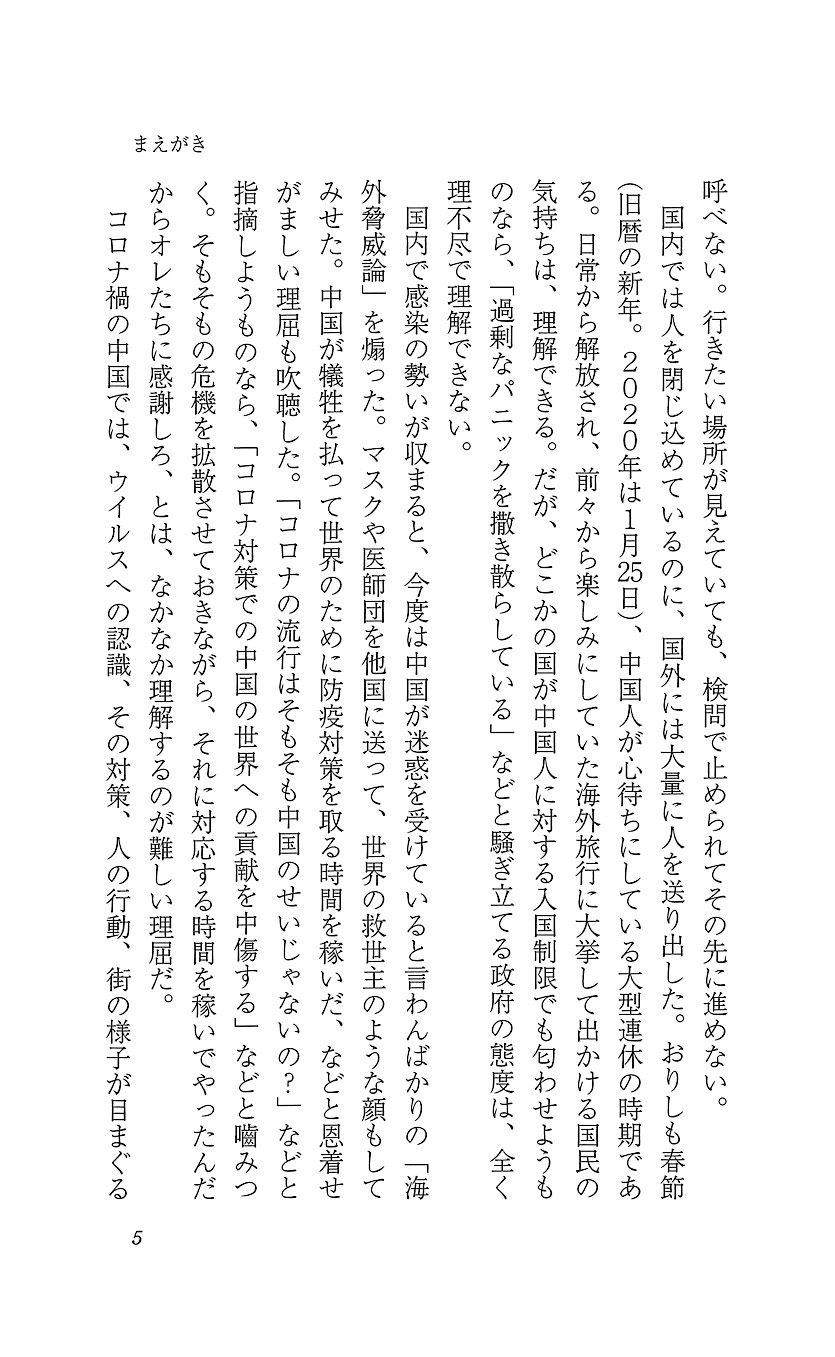 まえがき
呼べない。行きたい場所が見えていても、検問で止められてその先に進めない。
　国内では人を閉じ込めているのに、国外には大量に人を送り出した。おりしも春節
（旧暦の新年。２０２０年は１月25日）、中国人が心待ちにしている大型連休の時期であ
る。日常から解放され、前々から楽しみにしていた海外旅行に大挙して出かける国民の
気持ちは、理解できる。だが、どこかの国が中国人に対する入国制限でも匂わせようも
のなら、「過剰なパニックを撒き散らしている」などと騒ぎ立てる政府の態度は、全く
理不尽で理解できない。
　国内で感染の勢いが収まると、今度は中国が迷惑を受けていると言わんばかりの「海
外脅威論」を煽った。マスクや医師団を他国に送って、世界の救世主のような顔もして
みせた。中国が犠牲を払って世界のために防疫対策を取る時間を稼いだ、などと恩着せ
がましい理屈も吹聴した。「コロナの流行はそもそも中国のせいじゃないの？」などと
指摘しようものなら、「コロナ対策での中国の世界への貢献を中傷する」などと嚙みつ
く。そもそもの危機を拡散させておきながら、それに対応する時間を稼いでやったんだ
からオレたちに感謝しろ、とは、なかなか理解するのが難しい理屈だ。
　コロナ禍の中国では、ウイルスへの認識、その対策、人の行動、街の様子が目まぐる
5